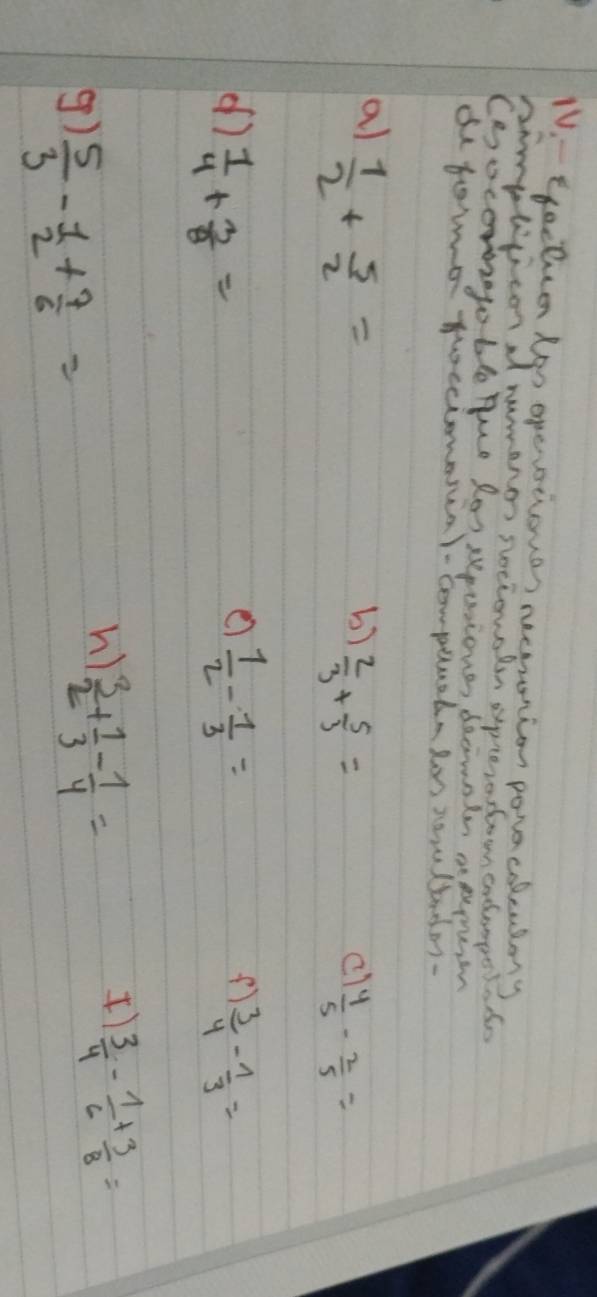 IV.- Efectua las operaciones necesarias para calcular y
simplificar el numeros racionales expresado en cada apartado
(es aconsejable que las expresiones decimales se expresen
de forma fraccionaria). Comprueba los resultados.-
a) 1/2 + 5/2 = b) 2/3 + 5/3 = c) 4/5 - 2/5 =
d) 1/4 + 3/8 = e) 1/2 - 1/3 = f) 3/4 - 1/3 =
g) 5/3 - 1/2 + 7/6 = h) 3/2 + 1/3 - 1/4 = I) 3/4 - 1/6 + 3/8 =